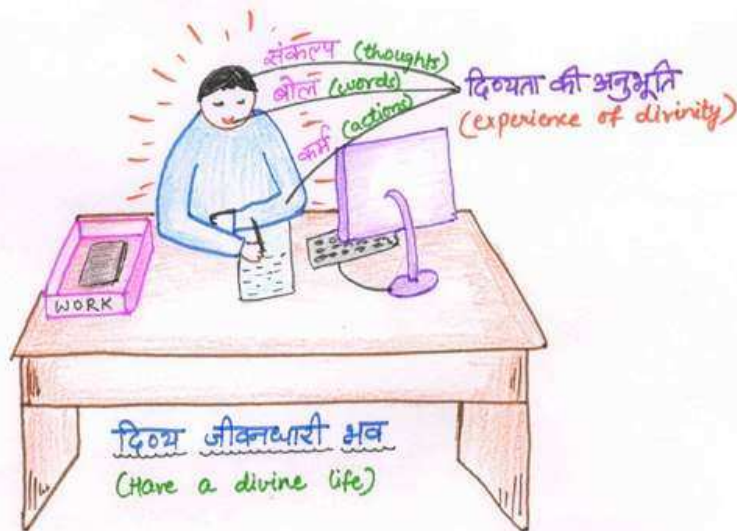 संकल्प (thoughts)
बोल (words)
कर्म (actions)
दिव्यता की अनुभूति
(experience of divinity)
WORK
दिव्य जीवनधारी भव
(Have a divine life)